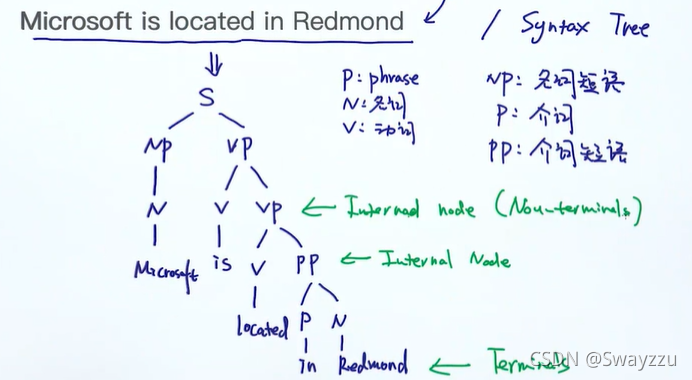 Microsoft is located in Redmond
/ Syntax Tree
P: phrase
N: 名词
V: 动词
NP: 名词短语
P: 介词
PP: 介词短语
S
NP VP
N V VP ← Internal node (Non-terminals)
Microsoft is V PP ← Internal Node
located P N
in Redmond ← Terminals
CSDN @Swayzzu